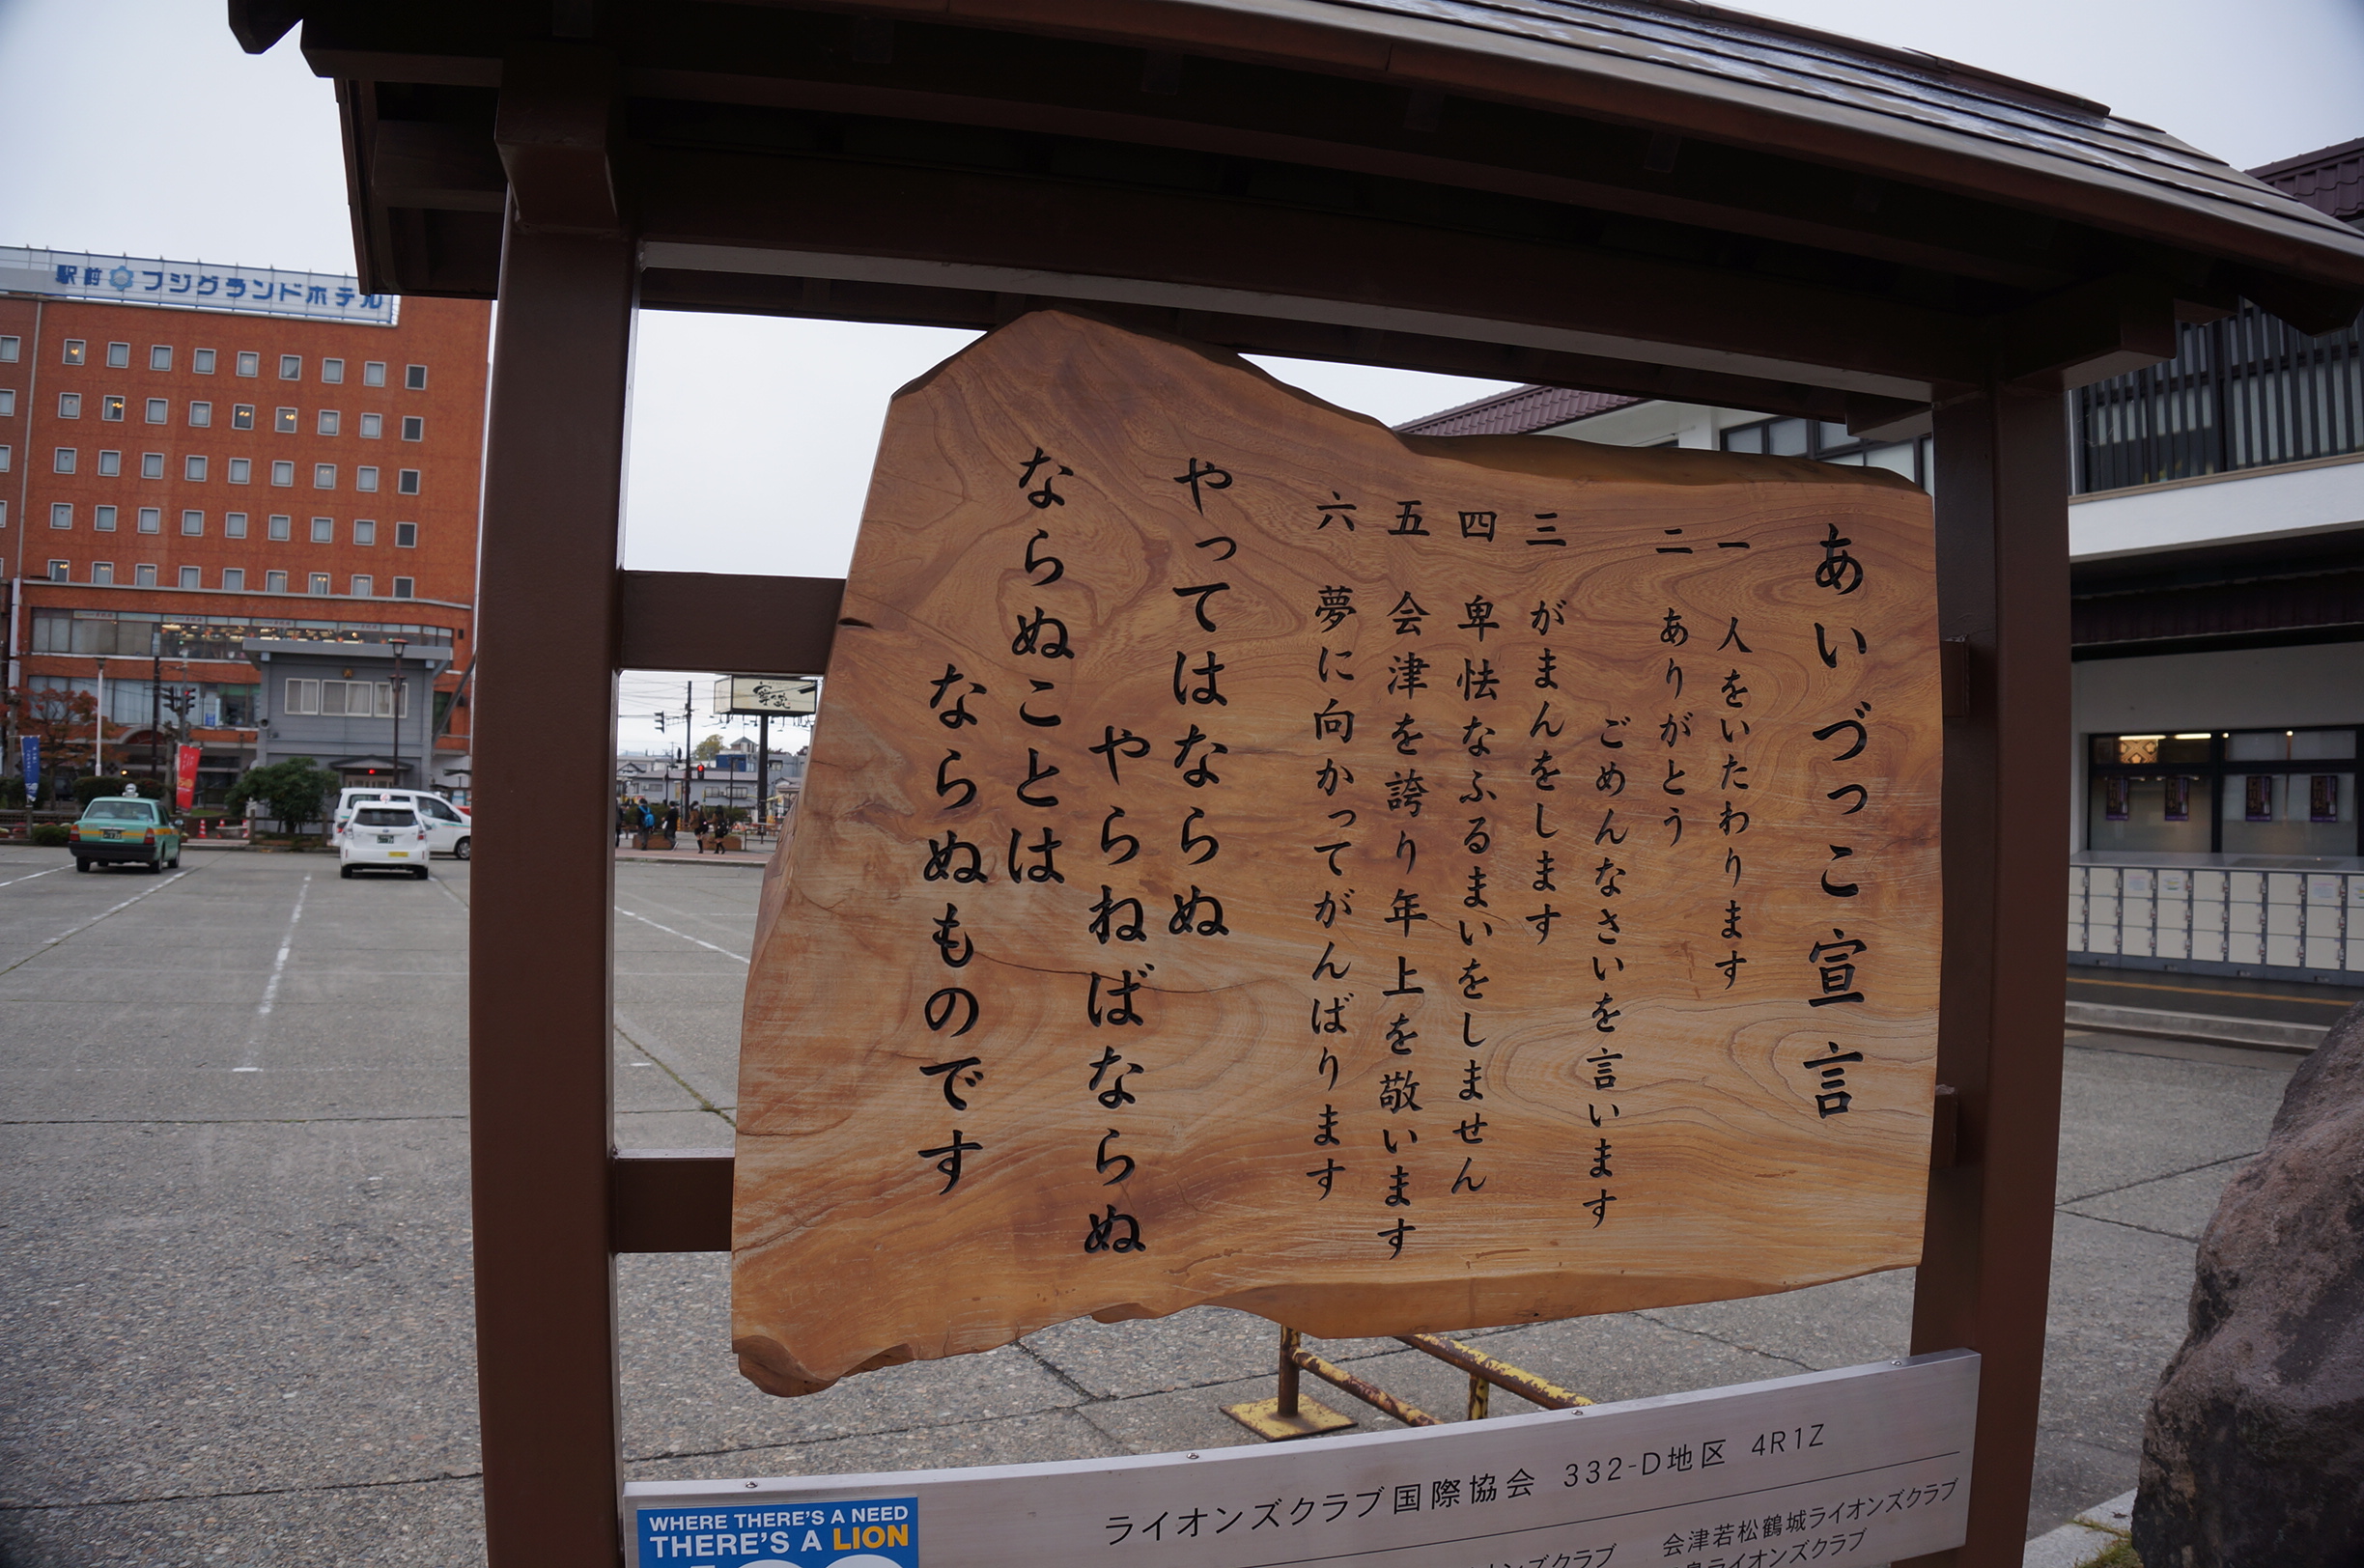 あいづっこ宣言
一 人をいたわります
二 ありがとう
ごめんなさいを言います
三 がまんをします
四 卑怯なふるまいをしません
五 会津を誇り年上を敬います
六 夢に向かってがんばります
やってはならぬ
やらねばならぬ
ならぬことは
ならぬものです
ライオンズクラブ国際協会 332-D地区 4R1Z
会津若松鶴城ライオンズクラブ
ライオンズクラブ
WHERE THERE'S A NEED
THERE'S A LION
駅前 フジグランドホテル